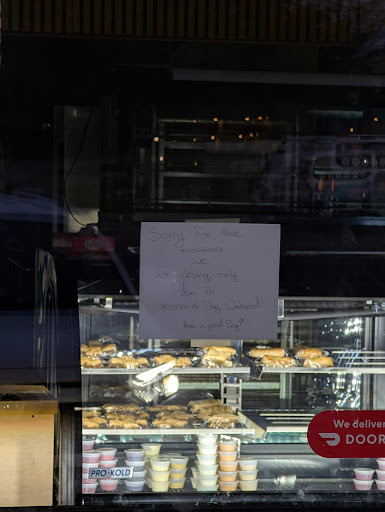 Sorry for the
We
are closing early
due to
memorial Day Weekend!
Have a good Day!
PRO-KOLD
We deliver
DOOR